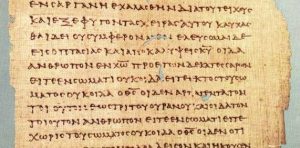 ΕΝϹΑΡΓΑΝΗΕΧΑΛΑϹΘΗΝΔΙΑΤΟΥΤΕΙΧΟΥϹ
ΚΑΙΕΞΕΦΥΓΟΝΤΑϹΧΕΙΡΑϹΑΥΤΟΥΚΑΥΧΑϹ
ΘΑΙΔΕΙΟΥϹΥΜΦΕΡΟΝΜΕΝΕΛΕΥϹΟΜΑΙΔΕ
ΕΙϹΟΠΤΑϹΙΑϹΚΑΙΑΠΟΚΑΛΥΨΕΙϹΚ̅Υ̅ΟΙΔΑ
ΑΝΘΡΩΠΟΝΕΝΧ̅Ρ̅Ω̅ΠΡΟΕΤΩΝΔΕΚΑΤΕϹϹΑΡΩΝ
ΕΙΤΕΕΝϹΩΜΑΤΙΟΥΚΟΙΔΑΕΙΤΕΕΚΤΟϹΤΟΥϹΩ
ΜΑΤΟϹΟΥΚΟΙΔΑΟΘ̅Ϲ̅ΟΙΔΕΝΑΡΠΑΓΕΝΤΑΤΟΝ
ΤΟΙΟΥΤΟΝΕΩϹΤΡΙΤΟΥΟΥΡΑΝΟΥΚΑΙΟΙΔΑΤΟΝ
ΤΟΙΟΥΤΟΝΑΝΘΡΩΠΟΝΕΙΤΕΕΝϹΩΜΑΤΙΕΙΤΕ
ΧΩΡΙϹΤΟΥϹΩΜΑΤΟϹΟΥΚΟΙΔΑΟΘ̅Ϲ̅ΟΙΔΕΝΟΤΙ